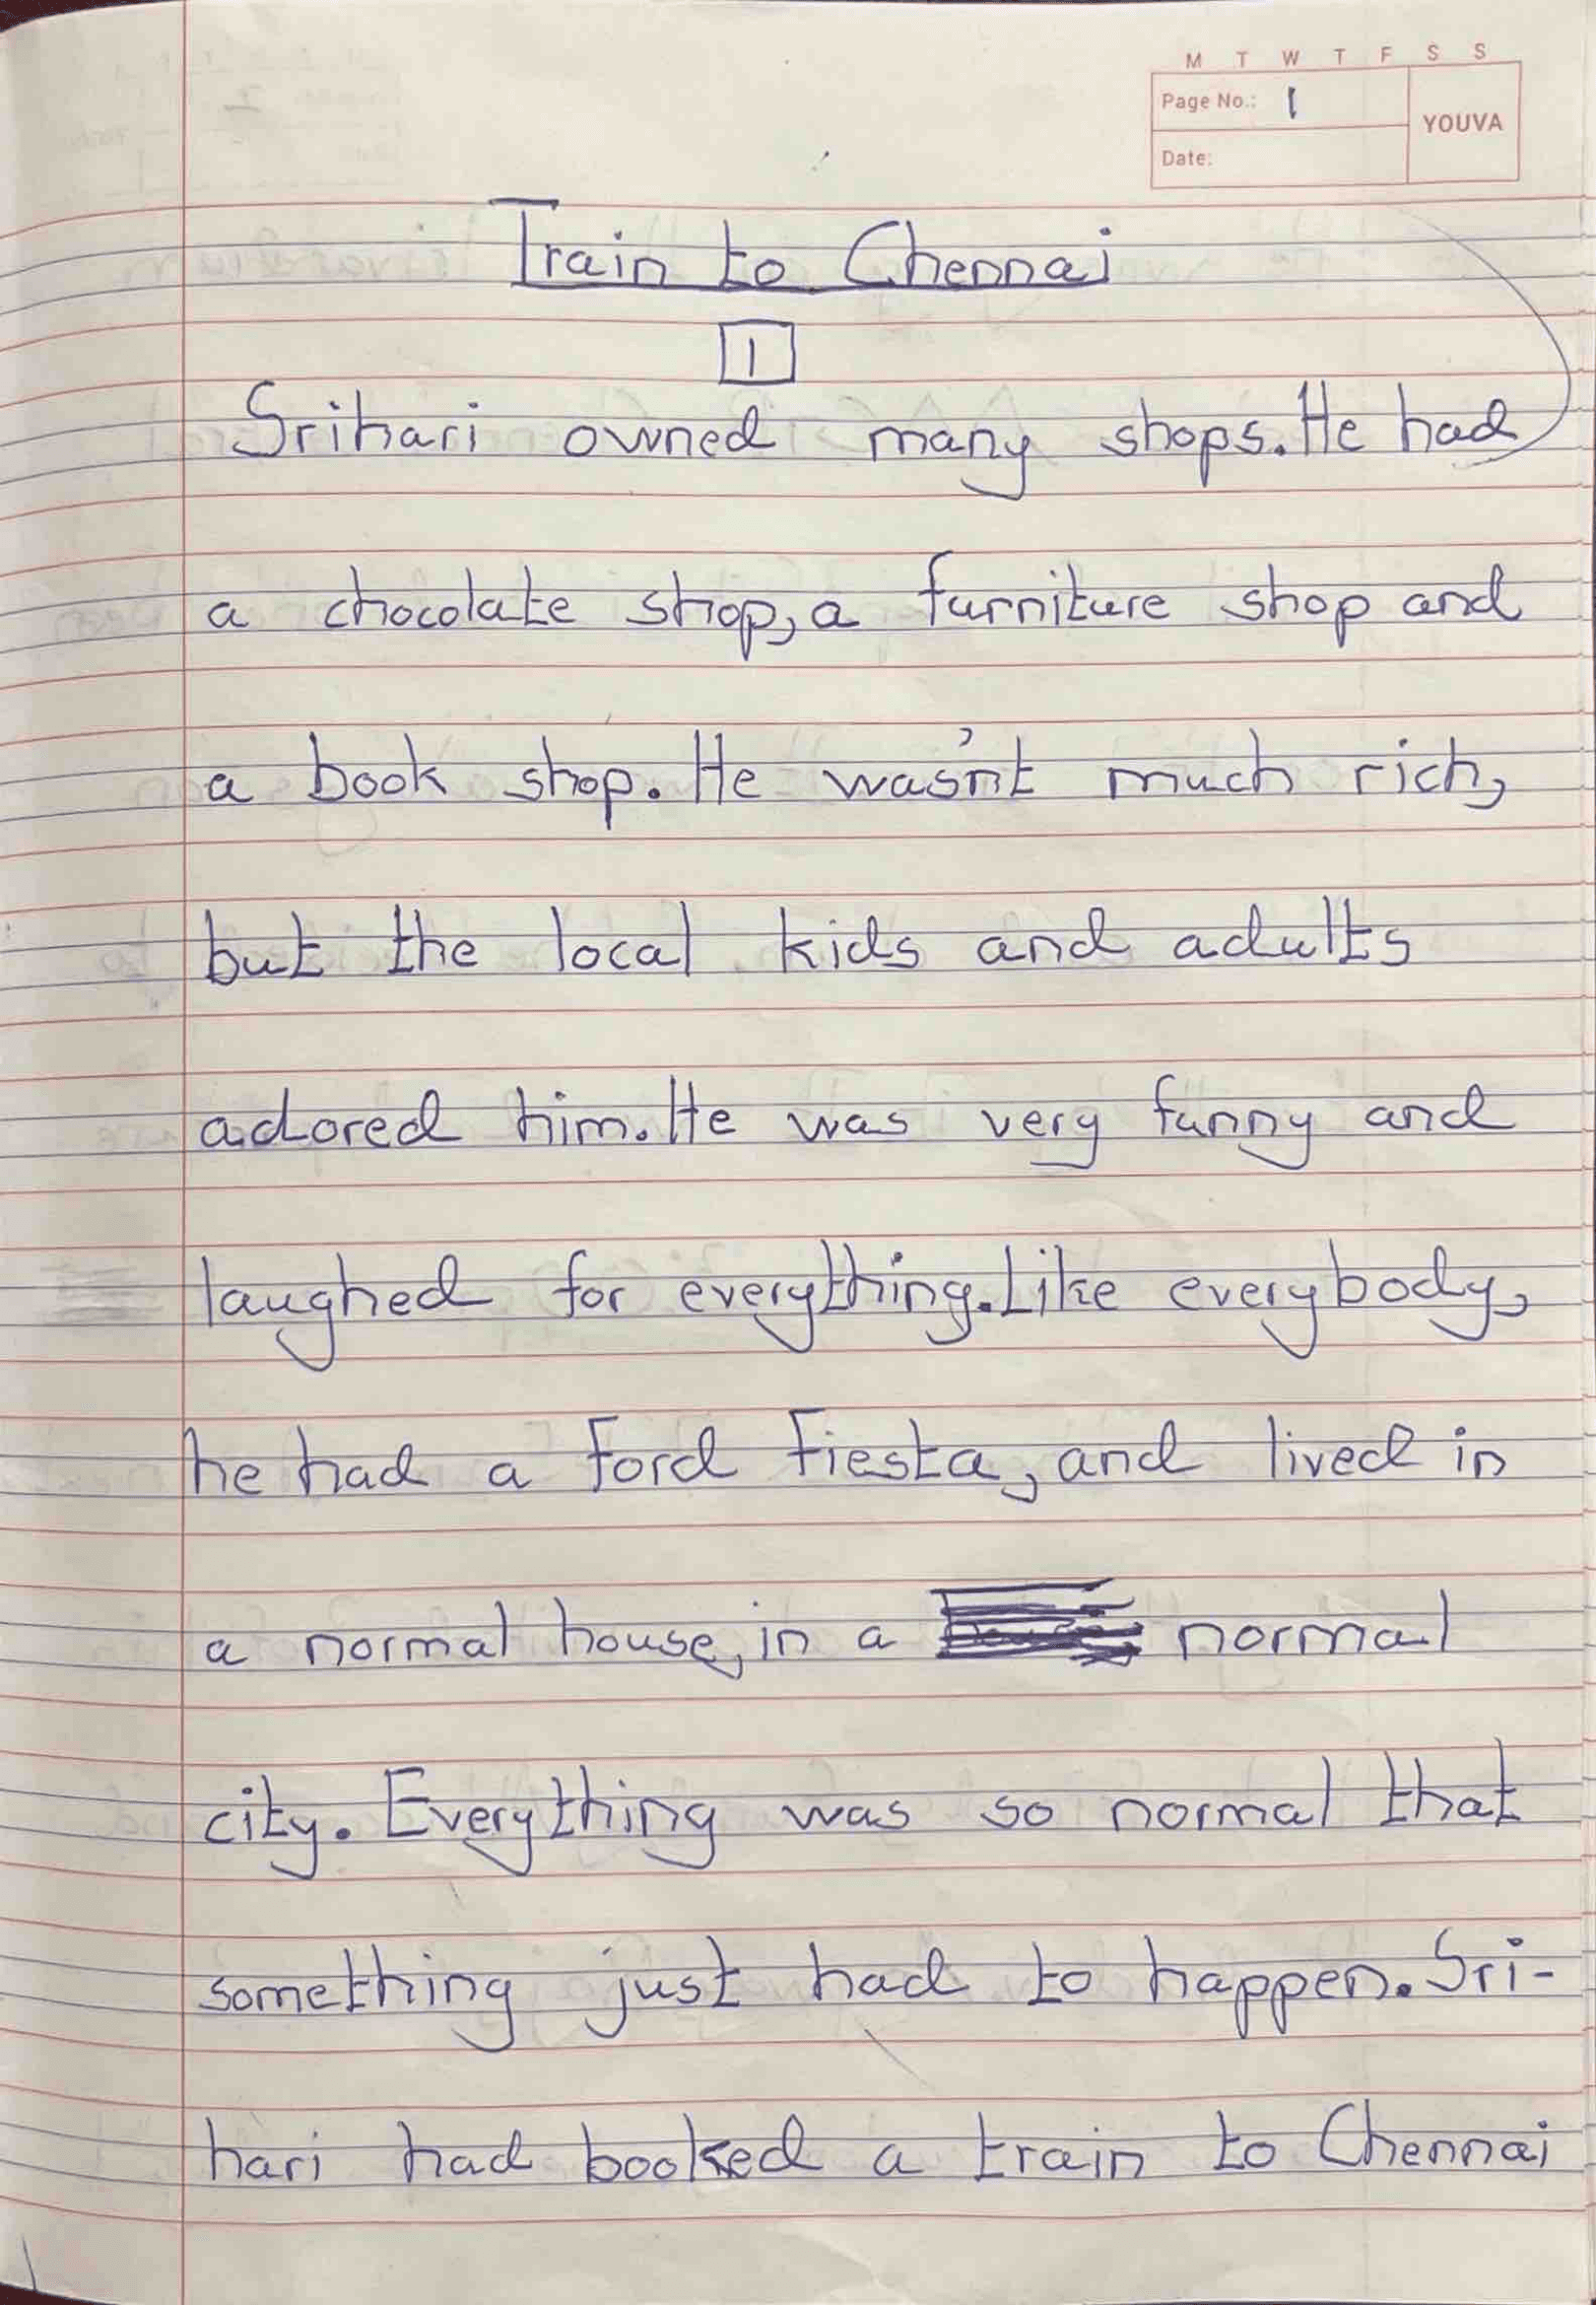 M T W T F S S
Page No.: 1
YOUVA
Date:
Train to Chennai
1
Srihari owned many shops. He had
a chocolate shop, a furniture shop and
a book shop. He wasn't much rich,
but the local kids and adults
adored him. He was very funny and
laughed for everything. Like everybody,
he had a Ford Fiesta, and lived in
a normal house, in a normal
city. Everything was so normal that
something just had to happen. Sri-
hari had booked a train to Chennai